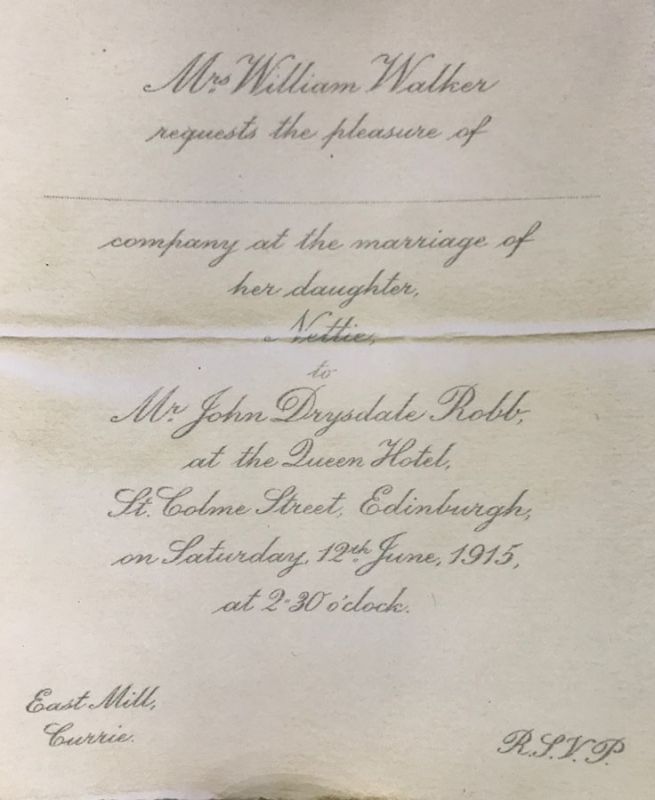 Mrs William Walker
requests the pleasure of
company at the marriage of
her daughter,
Nettie,
to
Mr John Drysdale Robb,
at the Queen Hotel,
St. Colme Street, Edinburgh,
on Saturday, 12th June, 1915,
at 2-30 o'clock.
East Mill,
Currie.
R.S.V.P.